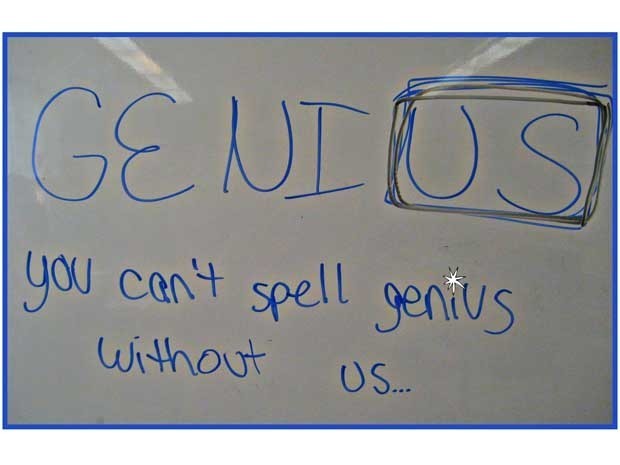 GENIUS
you can't spell genius
without us...